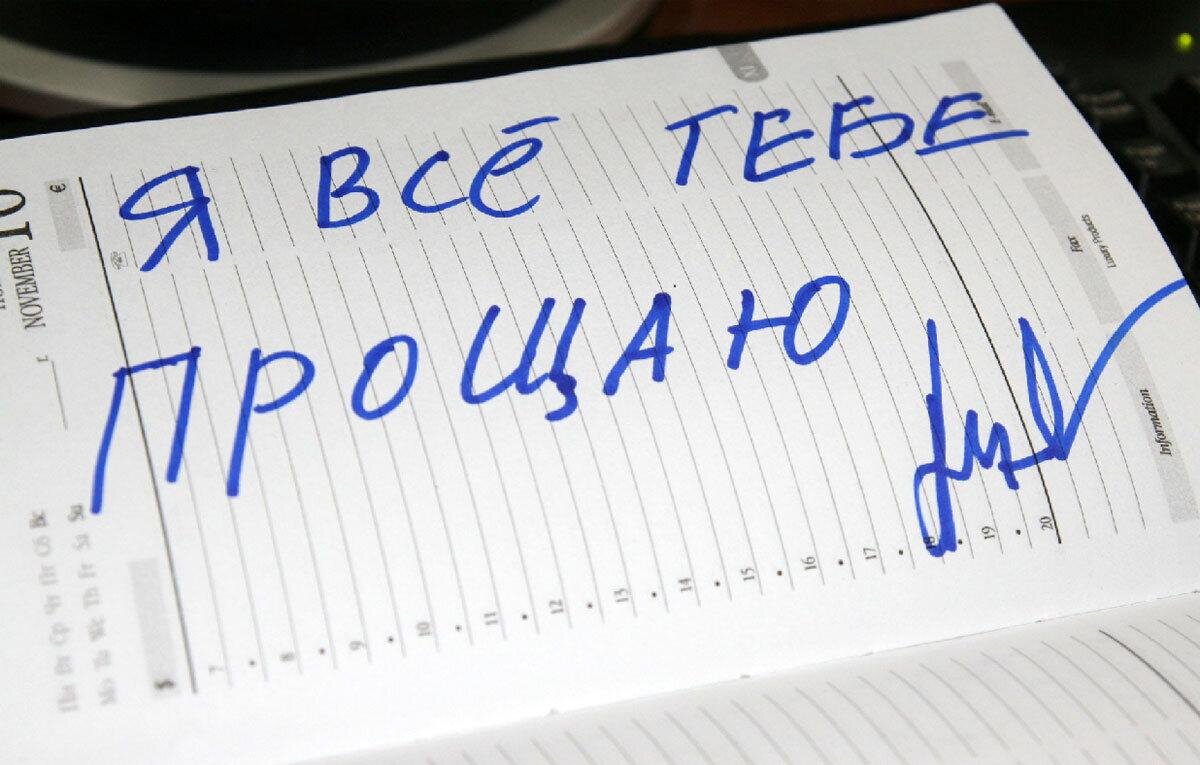 Я ВСЁ ТЕБЕ
ПРОЩАЮ
NOVEMBER 10
€
$
Fax
Luxury Products
Information
Пн Вт Ср Чт Пт Сб Вс
Mo Tu We Th Fr Sa Su
7
8
9
10
11
12
13
14
15
16
17
18
19
20